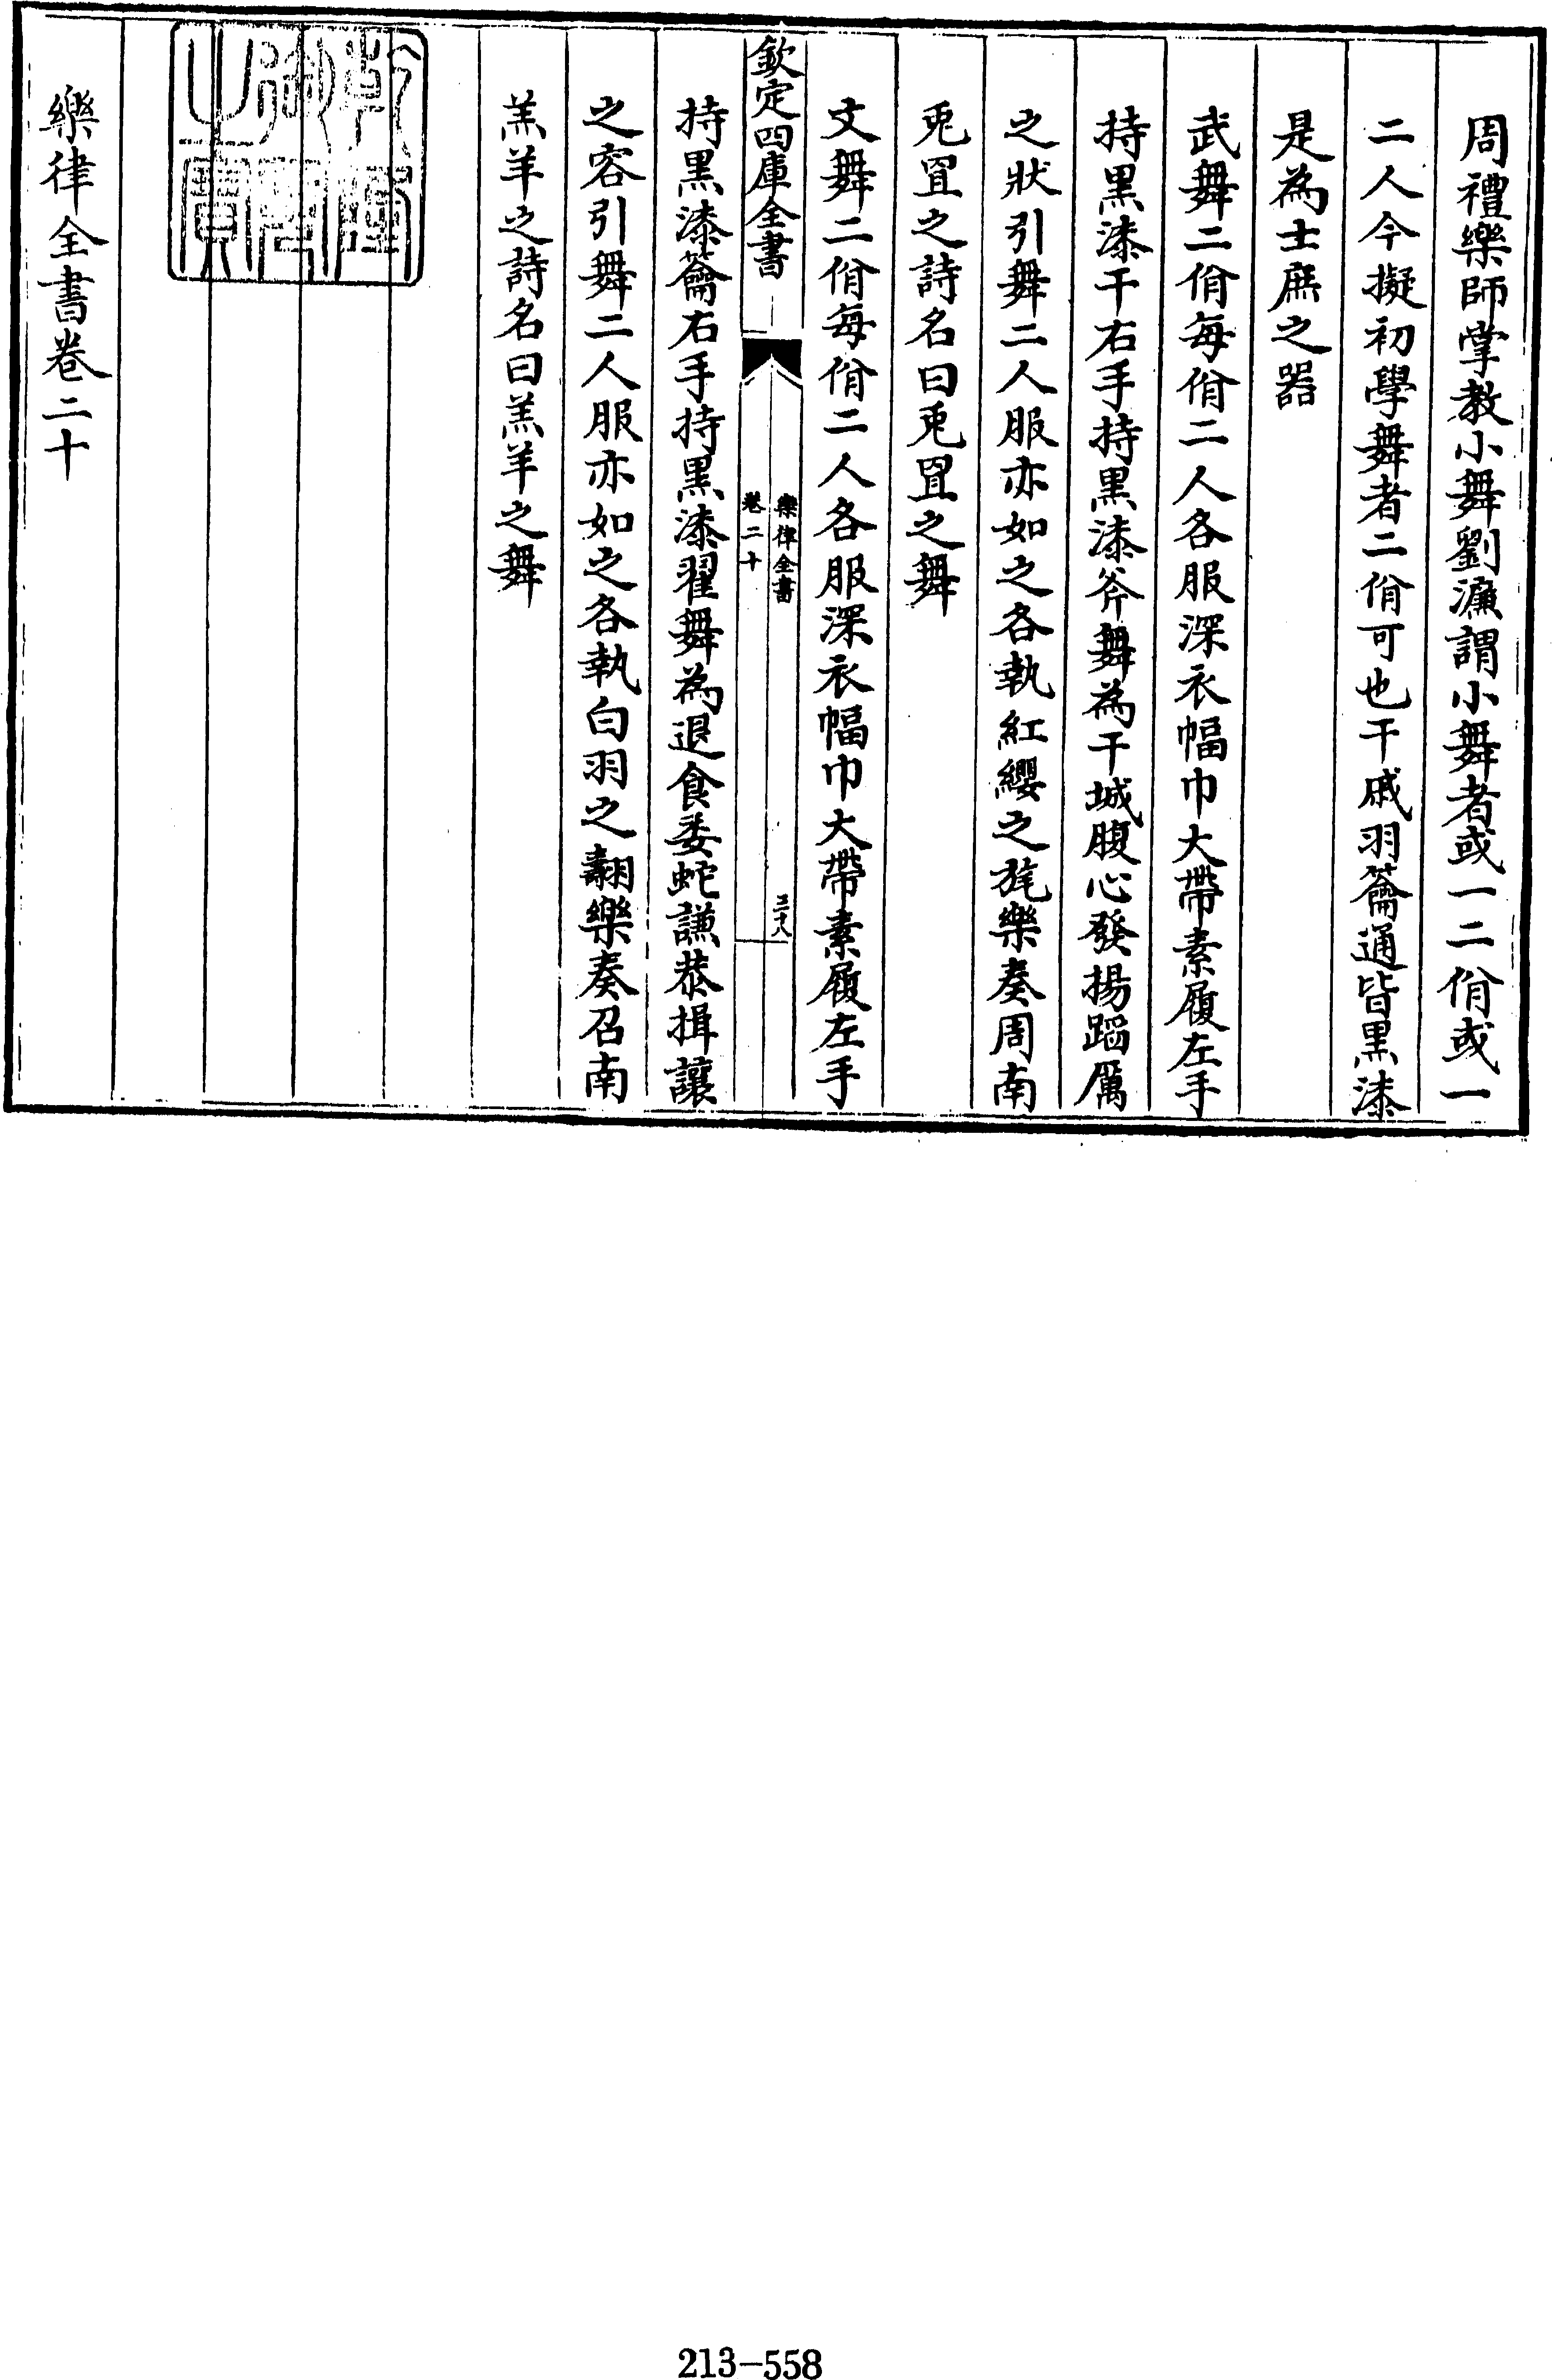 周禮樂師掌教小舞劉濂謂小舞者或一二佾或一
二人今擬初學舞者二佾可也干戚羽籥通皆黑漆
是為士庶之器
武舞二佾每佾二人各服深衣幅巾大帶素履左手
持黑漆干右手持黑漆斧舞為干城腹心發揚蹈厲
之狀引舞二人服亦如之各執紅纓之旄樂奏周南
兎罝之詩名曰兎罝之舞
文舞二佾每佾二人各服深衣幅巾大帶素履左手
欽定四庫全書
樂律全書
卷二十
三十八
持黑漆籥右手持黑漆翟舞為退食委蛇謙恭揖讓
之容引舞二人服亦如之各執白羽之翿樂奏召南
羔羊之詩名曰羔羊之舞
乾隆御覽之寶
樂律全書卷二十
213-558